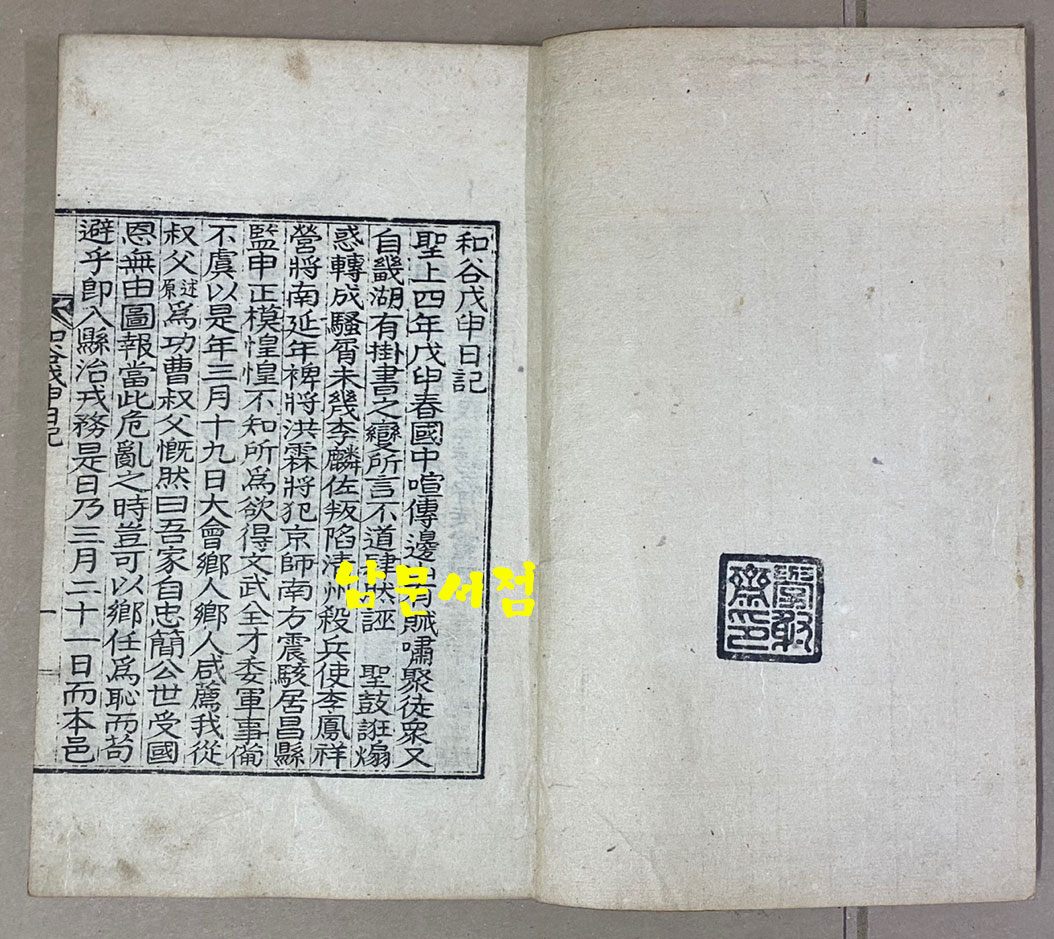 和谷戊申日記
聖上四年戊申春國中喧傳邊山有賊嘯聚徒衆又
自畿湖有掛書之變所言不道肆然誣　聖鼓誑煽
惑轉成騷屑未幾李麟佐叛陷清州殺兵使李鳳祥
營將南延年裨將洪霖將犯京師南方震駭居昌縣
監申正模惶惶不知所爲欲得文武全才委軍事備
不虞以是年三月十九日大會鄉人鄉人咸薦我從
叔父述原爲功曹叔父慨然曰吾家自忠簡公世受國
恩無由圖報當此危亂之時豈可以鄉任爲恥而苟
避乎卽入縣治戎務是日乃三月二十一日而本邑
和谷戊申日記
一
남문서점
齋印